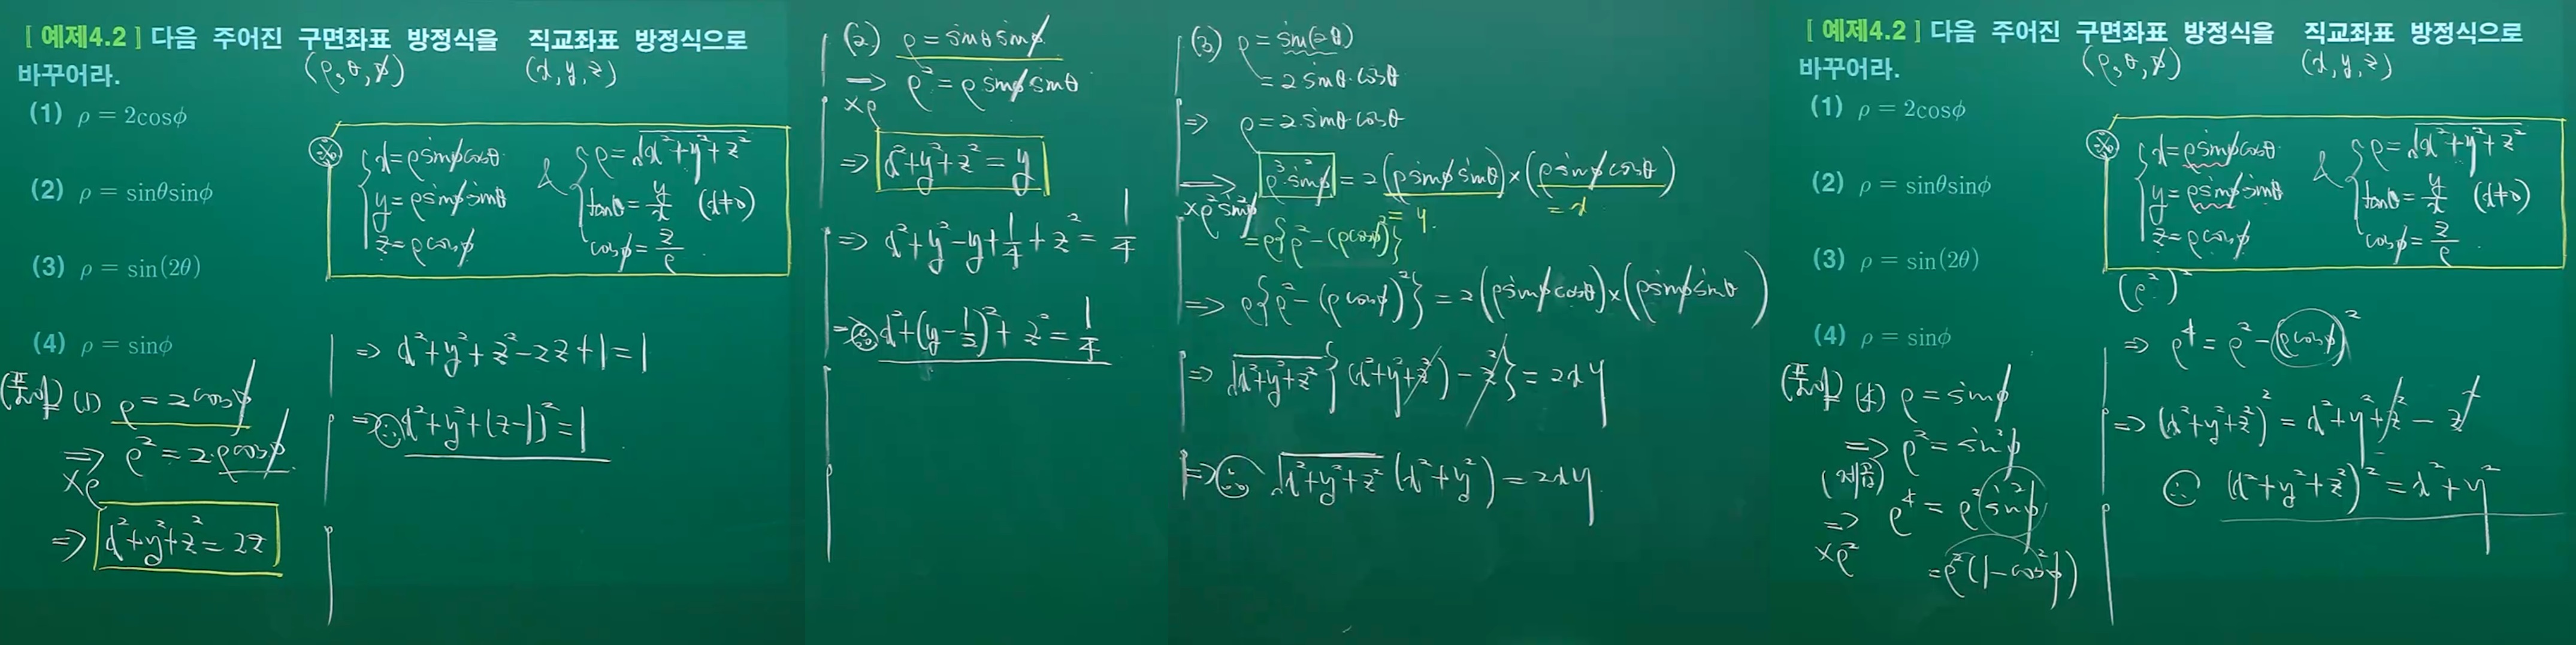 [ 예제4.2 ] 다음 주어진 구면좌표 방정식을 직교좌표 방정식으로
바꾸어라. (ρ, θ, ϕ) (x, y, z)
(1) ρ = 2cosϕ
(2) ρ = sinθsinϕ
(3) ρ = sin(2θ)
(4) ρ = sinϕ
※ x = ρsinϕcosθ & ρ = √(x²+y²+z²)
y = ρsinϕsinθ tanθ = y/x (x≠0)
z = ρcosϕ cosϕ = z/ρ
(풀이) (1) ρ = 2cosϕ
⇒ ρ² = 2·ρcosϕ
×ρ
⇒ x²+y²+z² = 2z
⇒ x²+y²+z²-2z+1 = 1
⇒ ∴ x²+y²+(z-1)² = 1
(2) ρ = sinθsinϕ
⇒ ρ² = ρsinϕsinθ
×ρ
⇒ x²+y²+z² = y
⇒ x²+y²-y+1/4+z² = 1/4
⇒ ∴ x²+(y-1/2)²+z² = 1/4
(3) ρ = sin(2θ)
= 2sinθ·cosθ
⇒ ρ = 2·sinθ·cosθ
⇒ ρ³·sin²ϕ = 2(ρsinϕsinθ)×(ρsinϕcosθ)
×ρ²sin²ϕ = y = x
= ρ{ρ²-(ρcosϕ)²}
⇒ ρ{ρ²-(ρcosϕ)²} = 2(ρsinϕcosθ)×(ρsinϕsinθ)
⇒ √(x²+y²+z²){(x²+y²+z²)-z²} = 2xy
⇒ ∴ √(x²+y²+z²)(x²+y²) = 2xy
[ 예제4.2 ] 다음 주어진 구면좌표 방정식을 직교좌표 방정식으로
바꾸어라. (ρ, θ, ϕ) (x, y, z)
(1) ρ = 2cosϕ
(2) ρ = sinθsinϕ
(3) ρ = sin(2θ)
(4) ρ = sinϕ
※ x = ρsinϕcosθ & ρ = √(x²+y²+z²)
y = ρsinϕsinθ tanθ = y/x (x≠0)
z = ρcosϕ cosϕ = z/ρ
(풀이) (4) ρ = sinϕ
⇒ ρ² = sin²ϕ
(제곱)
⇒ ρ⁴ = ρ²sin²ϕ
×ρ² = ρ²(1-cos²ϕ)
(ρ²)²
⇒ ρ⁴ = ρ²-(ρcosϕ)²
⇒ (x²+y²+z²)² = x²+y²+z²-z²
∴ (x²+y²+z²)² = x²+y²